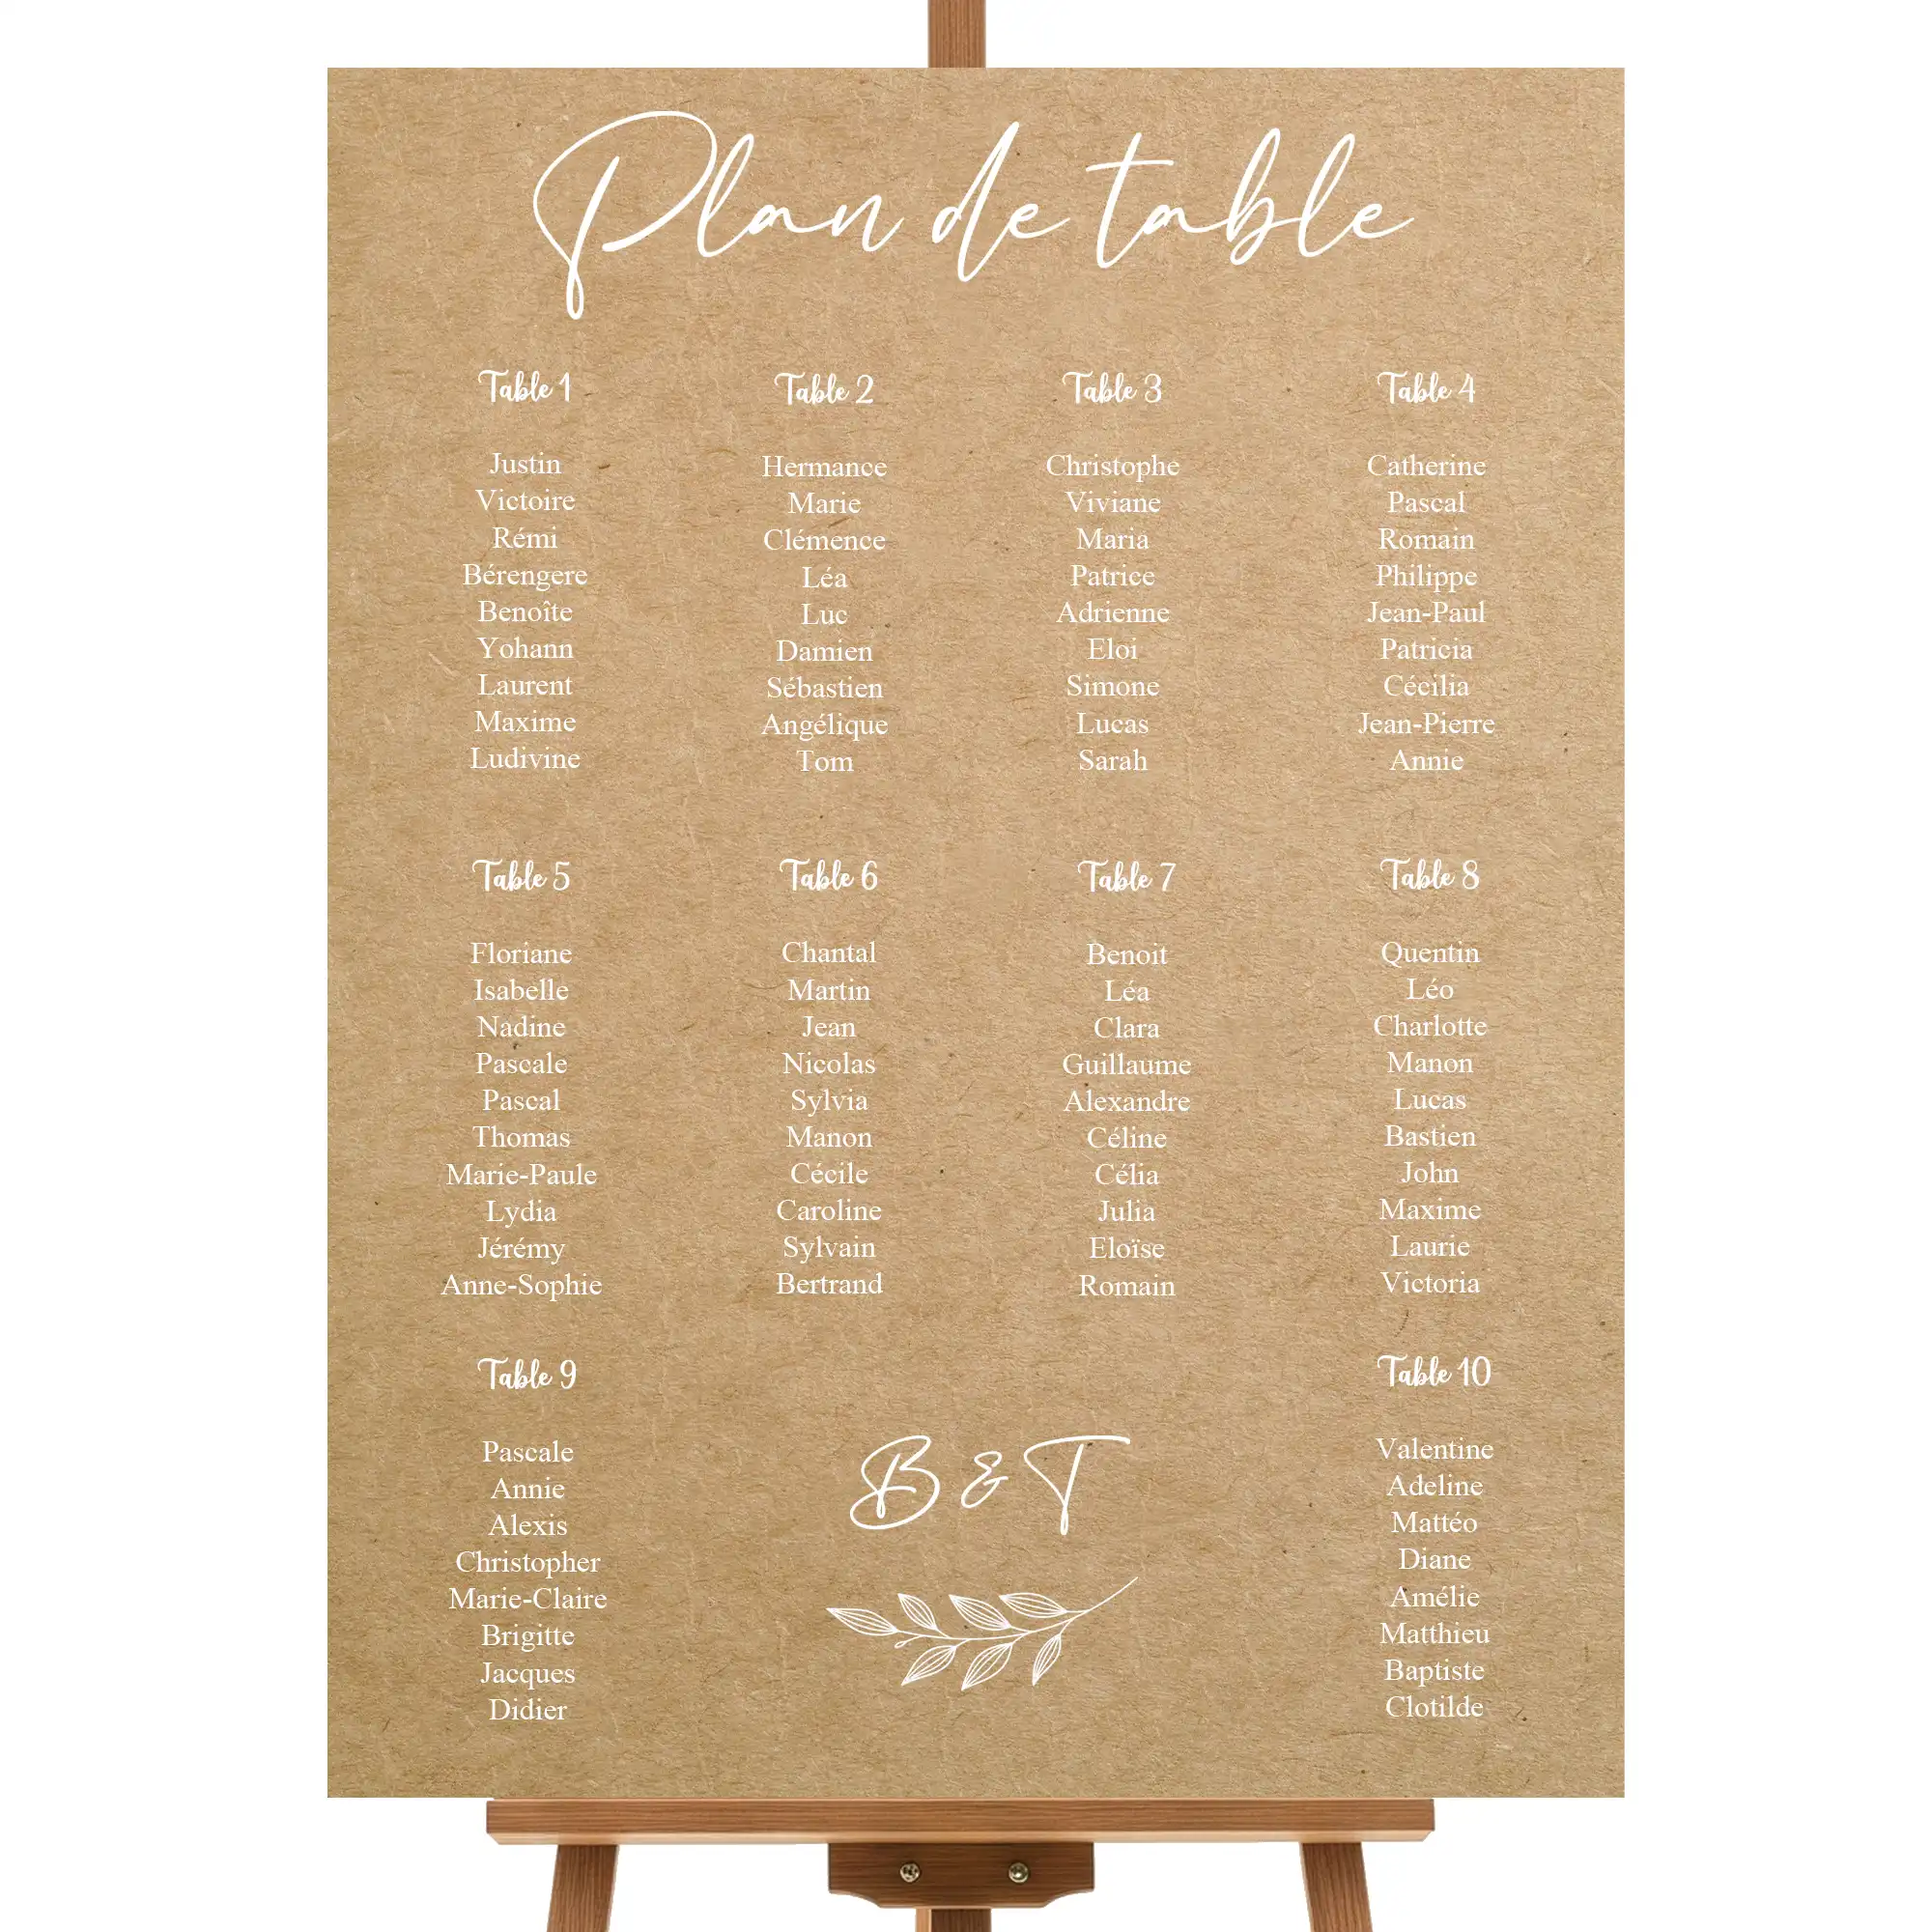 Plan de table
Table 1
Justin
Victoire
Rémi
Bérengere
Benoîte
Yohann
Laurent
Maxime
Ludivine
Table 2
Hermance
Marie
Clémence
Léa
Luc
Damien
Sébastien
Angélique
Tom
Table 3
Christophe
Viviane
Maria
Patrice
Adrienne
Eloi
Simone
Lucas
Sarah
Table 4
Catherine
Pascal
Romain
Philippe
Jean-Paul
Patricia
Cécilia
Jean-Pierre
Annie
Table 5
Floriane
Isabelle
Nadine
Pascale
Pascal
Thomas
Marie-Paule
Lydia
Jérémy
Anne-Sophie
Table 6
Chantal
Martin
Jean
Nicolas
Sylvia
Manon
Cécile
Caroline
Sylvain
Bertrand
Table 7
Benoit
Léa
Clara
Guillaume
Alexandre
Céline
Célia
Julia
Eloïse
Romain
Table 8
Quentin
Léo
Charlotte
Manon
Lucas
Bastien
John
Maxime
Laurie
Victoria
Table 9
Pascale
Annie
Alexis
Christopher
Marie-Claire
Brigitte
Jacques
Didier
B & T
Table 10
Valentine
Adeline
Mattéo
Diane
Amélie
Matthieu
Baptiste
Clotilde